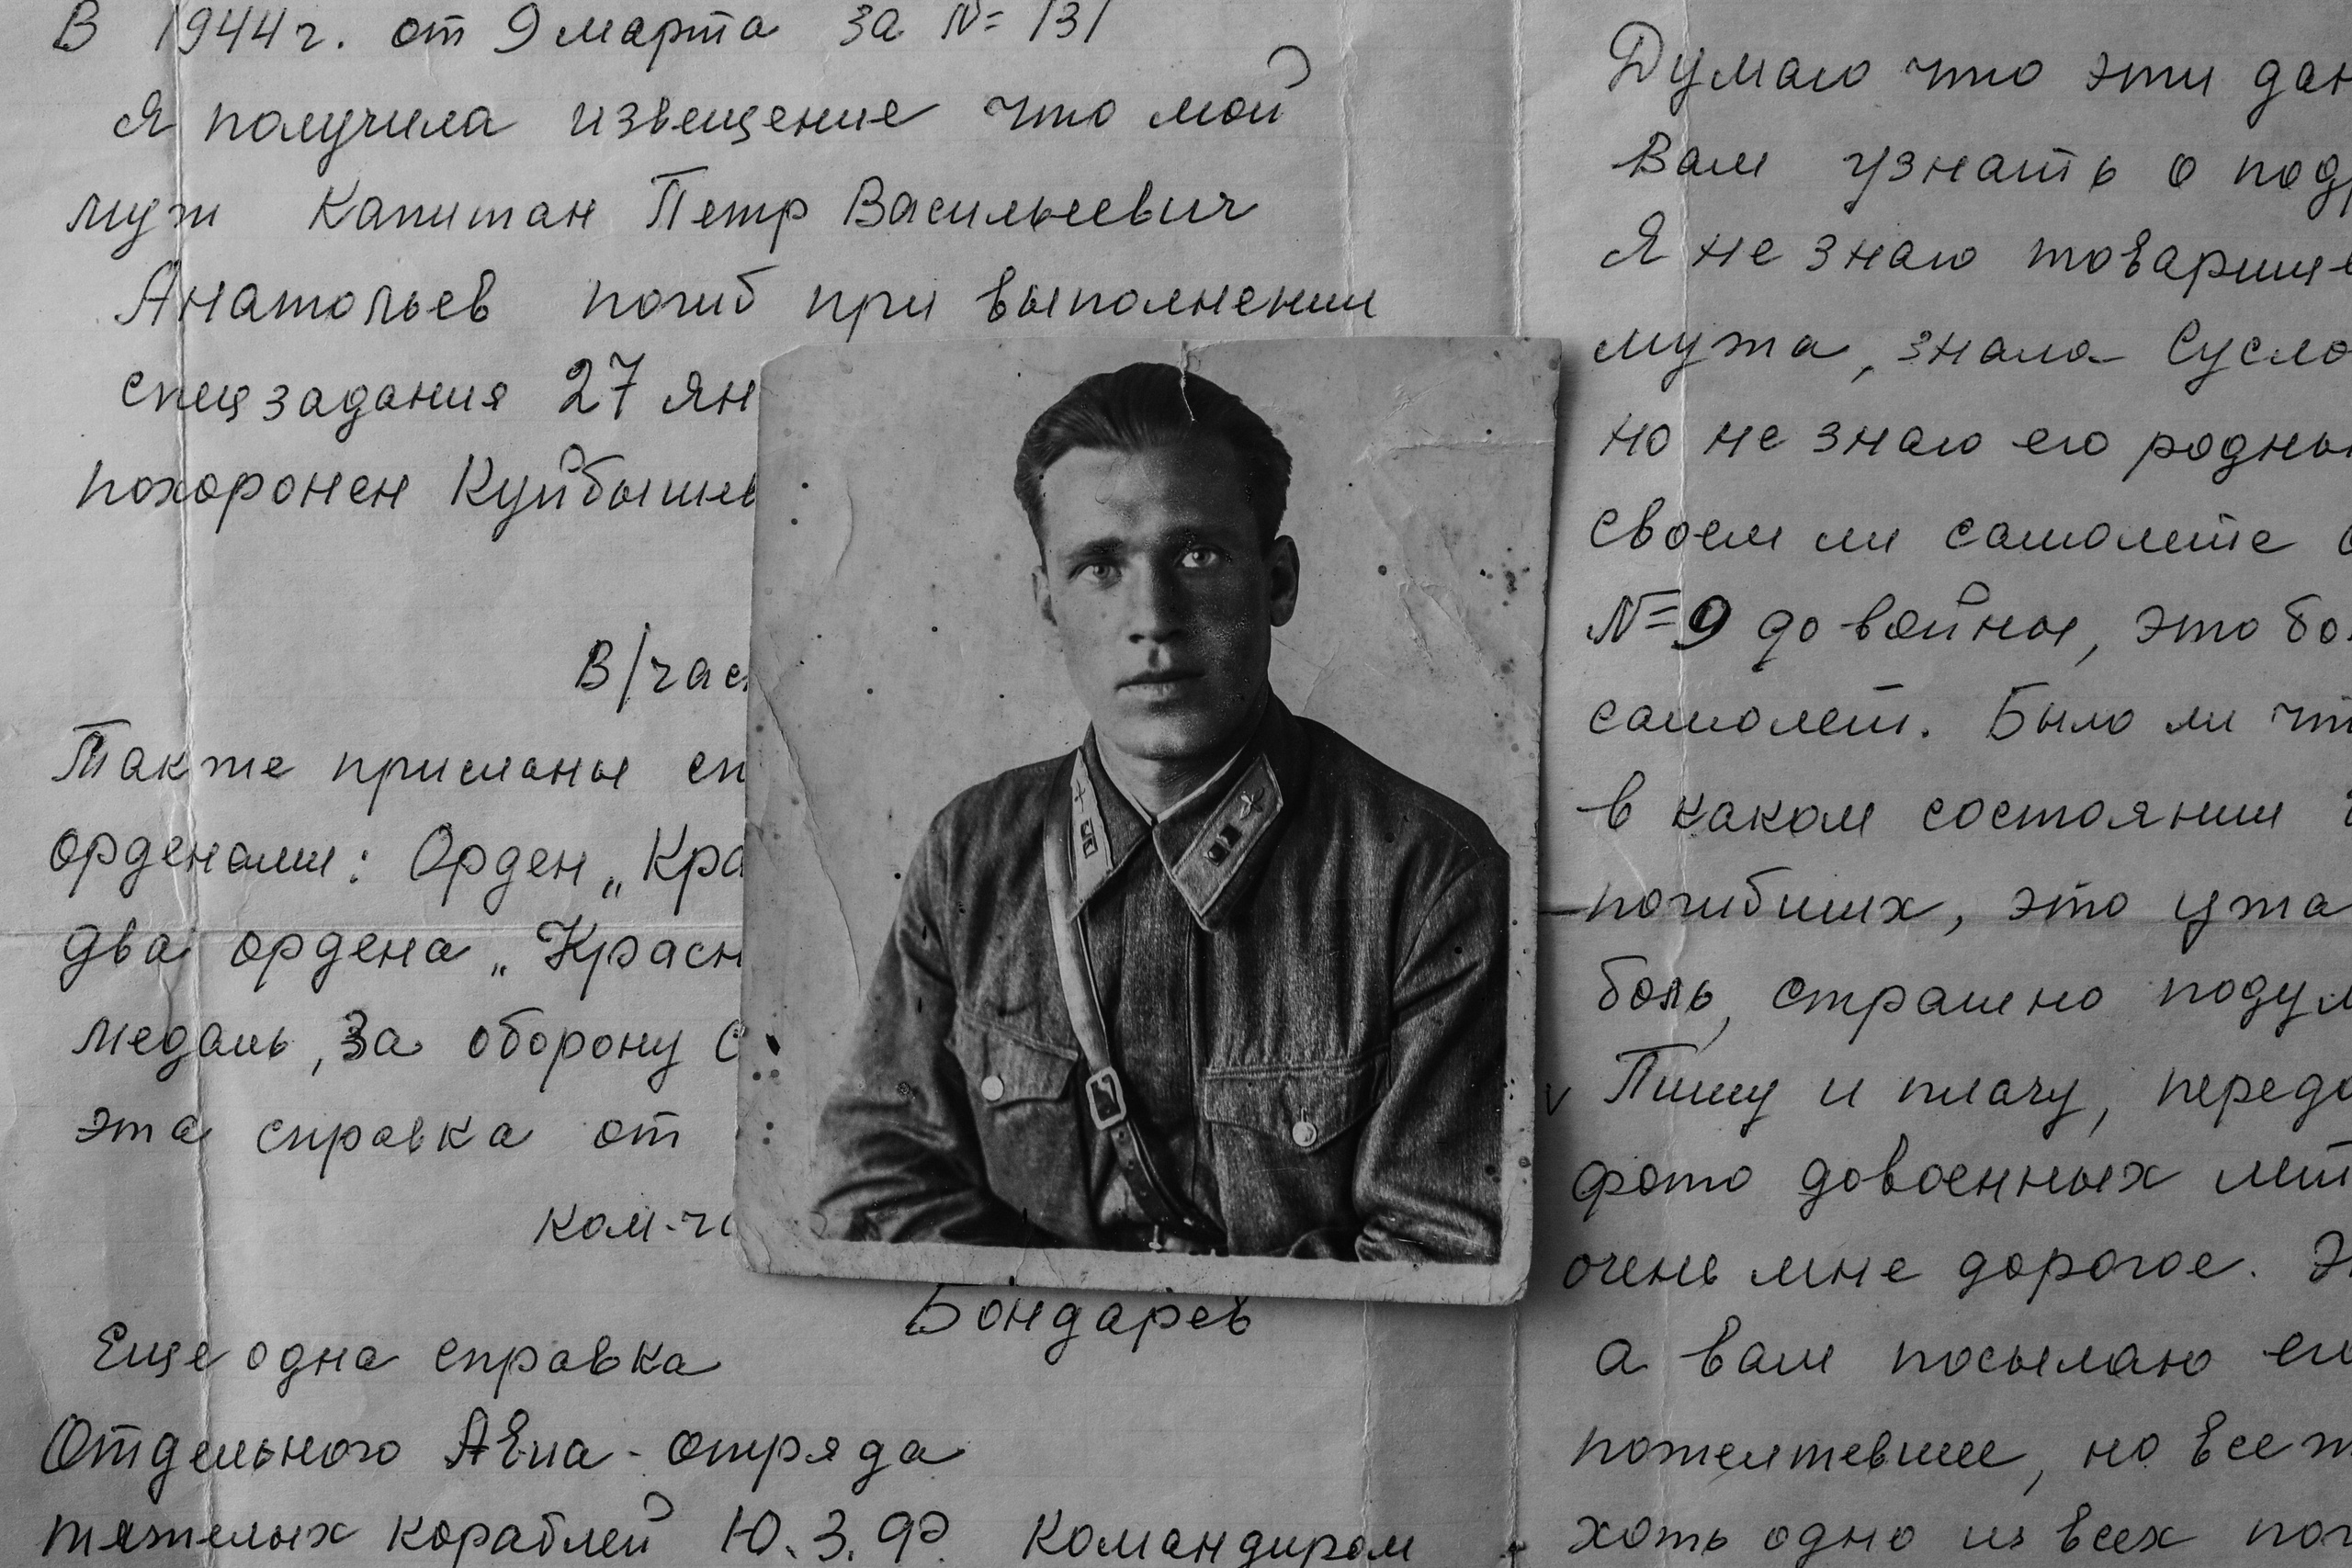 В 1944 г. от 9 марта за № 131
Я получила извещение что мой
муж Капитан Петр Васильевич
Анатольев погиб при выполнении
спецзадания 27 ян
похоронен Куйбышев
В/час
Также присланы сп
орденами: Орден „Кра
два ордена „Красн
медаль „За оборону С
эта справка от
ком-ч
Бондарев
Еще одна справка
Отдельного Авиа-отряда
тяжелых кораблей Ю.З.Ф. Командиром
Думаю что эти дан
Вам узнать о подр
Я не знаю товарище
мужа, знала Сусло
но не знаю его родны
своем ли самолете
№ 9 до войны, это бо
самолет. Было ли чт
в каком состоянии
погибших, это ужа
боль, страшно подум
Пишу и плачу, переда
фото довоенных лет
очень мне дорогое. Э
а вам посылаю ег
пожелтевшее, но все ж
хоть одно из всех пог